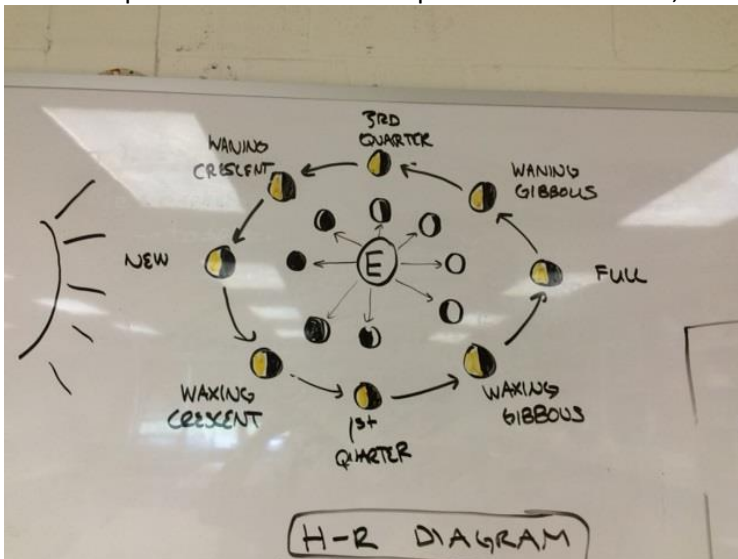 3RD
QUARTER
WANING
CRESCENT
WANING
GIBBOUS
NEW
E
FULL
WAXING
CRESCENT
1st
QUARTER
WAXING
GIBBOUS
H-R DIAGRAM